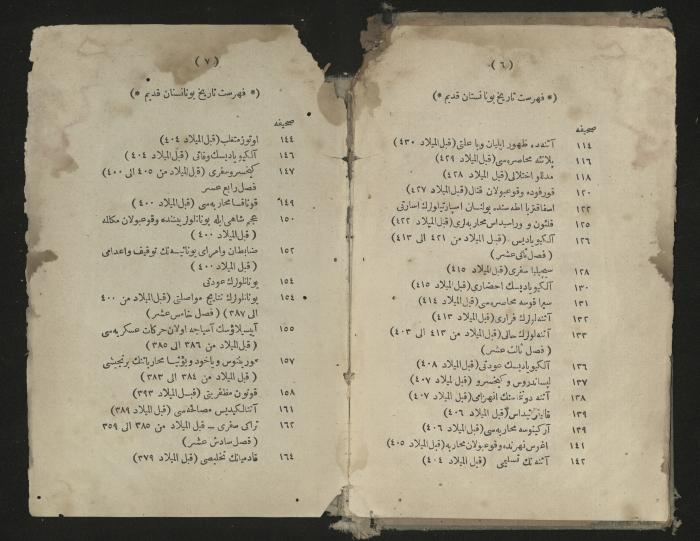 (٦)
(* فهرست تاريخ يونانستان قديم *)
صحيفه
١١٤ آتنه‌ده ظهور ايليان وبا علتى (قبل الميلاد ٤٣٠)
١١٦ پلاته محاصره‌سى (قبل الميلاد ٤٢٩)
١١٨ مدللو اختلالى (قبل الميلاد ٤٢٨)
١٢٠ قورفوده وقوعبولان قتال (قبل الميلاد ٤٢٧)
١٢٢ اسفاقتريا اطه‌سنده بولنان اسپارتيلولرك اسارتى
١٢٥ قلئون و براسيداس محاربه‌لرى (قبل الميلاد ٤٢٢)
١٢٦ آلكيوياديس (قبل الميلاد من ٤٢١ الى ٤١٣)
(فصل ثانى عشر)
١٢٨ سيجيليا سفرى (قبل الميلاد ٤١٥)
١٣٠ آلكيوياديسك احضارى (قبل الميلاد ٤١٥)
١٣١ سيراقوسه محاصره‌سى (قبل الميلاد ٤١٤)
١٣٢ آتنه‌لولرك فرارى (قبل الميلاد ٤١٣)
١٣٣ آتنه‌لولرك حالى (قبل الميلاد من ٤١٣ الى ٤٠٣)
(فصل ثالث عشر)
١٣٦ آلكيوياديسك عودتى (قبل الميلاد ٤٠٨)
١٣٧ ليساندروس و كيخسرو (قبل الميلاد ٤٠٧)
١٣٨ آتنه دونانمه‌سنك انهزامى (قبل الميلاد ٤٠٧)
١٣٩ قاليقراتيداس (قبل الميلاد ٤٠٦)
١٣٩ آركينوسه محاربه‌سى (قبل الميلاد ٤٠٦)
١٤١ اغوس نهرنده وقوعبولان محاربه (قبل الميلاد ٤٠٥)
١٤٢ آتنه‌نك تسليمى (قبل الميلاد ٤٠٤)
(٧)
(* فهرست تاريخ يونانستان قديم *)
صحيفه
١٤٤ اوتوز متغلب (قبل الميلاد ٤٠٤)
١٤٦ آلكيوياديسك وفاتى (قبل الميلاد ٤٠٤)
١٤٧ كيخسرو سفرى (قبل الميلاد من ٤٠٥ الى ٤٠٠)
فصل رابع عشر
١٤٩ قوناقسا محاربه‌سى (قبل الميلاد ٤٠٠)
١٥٠ عجم شاهى ايله يونانلولر بيننده وقوعبولان مكالمه
(قبل الميلاد ٤٠٠)
١٥٢ ضابطان وامراى يونانيه‌نك توقيف واعدامى
(قبل الميلاد ٤٠٠)
١٥٤ يونانلولرك عودتى
١٥٤ يونانلولرك نتايج مواصلتى (قبل الميلاد من ٤٠٠
الى ٣٨٧) (فصل خامس عشر)
١٥٥ آيسيلاؤسك آسياجه اولان حركات عسكريه‌سى
(قبل الميلاد من ٣٨٦ الى ٣٨٥)
١٥٧ قورينتوس وياخود ويؤتيا محارباتنك برنجيسى
(قبل الميلاد من ٣٨٤ الى ٣٨٣)
١٥٨ قونون مظفريتى (قبل الميلاد ٣٩٣)
١٦١ آنتالكيديس مصالحه‌سى (قبل الميلاد ٣٨٩)
١٦٢ تراكى سفرى — قبل الميلاد من ٣٨٥ الى ٣٥٩
(فصل سادس عشر)
١٦٤ قادميانك تخليصى (قبل الميلاد ٣٧٩)